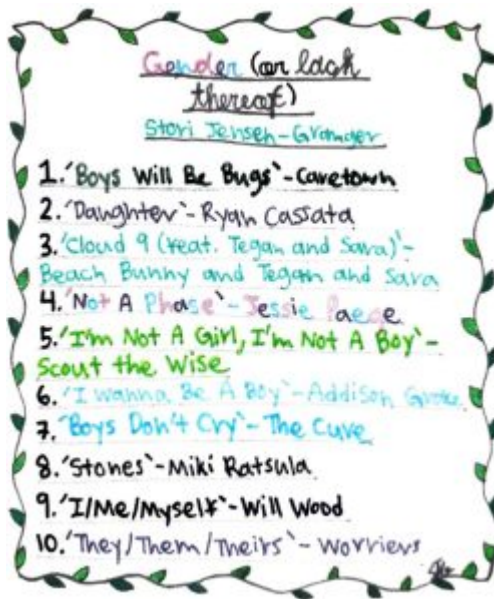 Gender (or lack
thereof)
Stori Jensen-Granger
1. 'Boys Will Be Bugs' - Cavetown
2. 'Daughter' - Ryan Cassata
3. 'Cloud 9 (feat. Tegan and Sara)' -
Beach Bunny and Tegan and Sara
4. 'Not A Phase' - Jessie Paege
5. 'I'm Not A Girl, I'm Not A Boy' -
Scout the Wise
6. 'I wanna Be A Boy' - Addison Grace
7. 'Boys Don't Cry' - The Cure
8. 'Stones' - Miki Ratsula
9. 'I/Me/Myself' - Will Wood
10. 'They/Them/Theirs' - Worriers